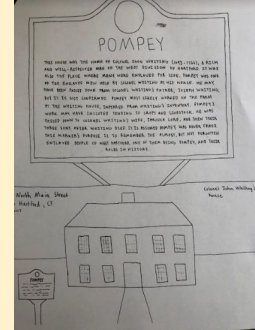 POMPEY
THIS HOUSE WAS THE HOME OF COLONEL JOHN WHITING (1693-1766), A RICH
AND WELL-RESPECTED MAN OF THE WEST DIVISION OF HARTFORD. IT WAS
ALSO THE PLACE WHERE MANY WERE ENSLAVED FOR LIFE. POMPEY WAS ONE
OF THE ENSLAVED MEN HELD BY COLONEL WHITING AT HIS HOUSE. HE MAY
HAVE BEEN PASSED DOWN FROM COLONEL WHITING'S FATHER, JOSEPH WHITING,
BUT IT IS NOT CONFIRMED. POMPEY MOST LIKELY WORKED ON THE FARM
OF THE WHITING HOUSE, SEPARATE FROM WHITING'S
WORK MAY HAVE INCLUDED TENDING TO CROPS AND LIVESTOCK. HE WAS
PASSED DOWN TO COLONEL WHITING'S WIFE, JERUSHA LORD, AND THEN THEIR
THREE SONS AFTER WHITING DIED. IT IS BELIEVED POMPEY WAS NEVER FREED.
THIS MARKER'S PURPOSE IS TO REMEMBER THE ALWAYS, BUT NOT FORGOTTEN
ENSLAVED PEOPLE IN WEST HARTFORD, ONE OF THEM BEING POMPEY, AND THEIR
ROLES IN HISTORY.
North Main Street
Hartford, CT
Colonel John Whiting's
house
POMPEY